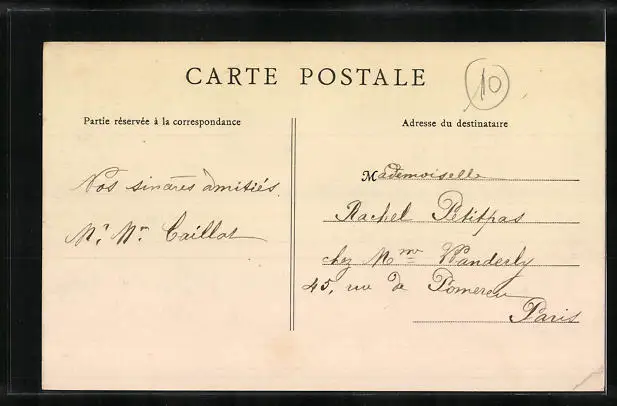 CARTE POSTALE
10
Partie réservée à la correspondance
Adresse du destinataire
Nos sincères amitiés.
Mr Mme Caillot
Mademoiselle
Rachel Petitpas
chez Mme Wanderly
45, rue de Pomereu
Paris